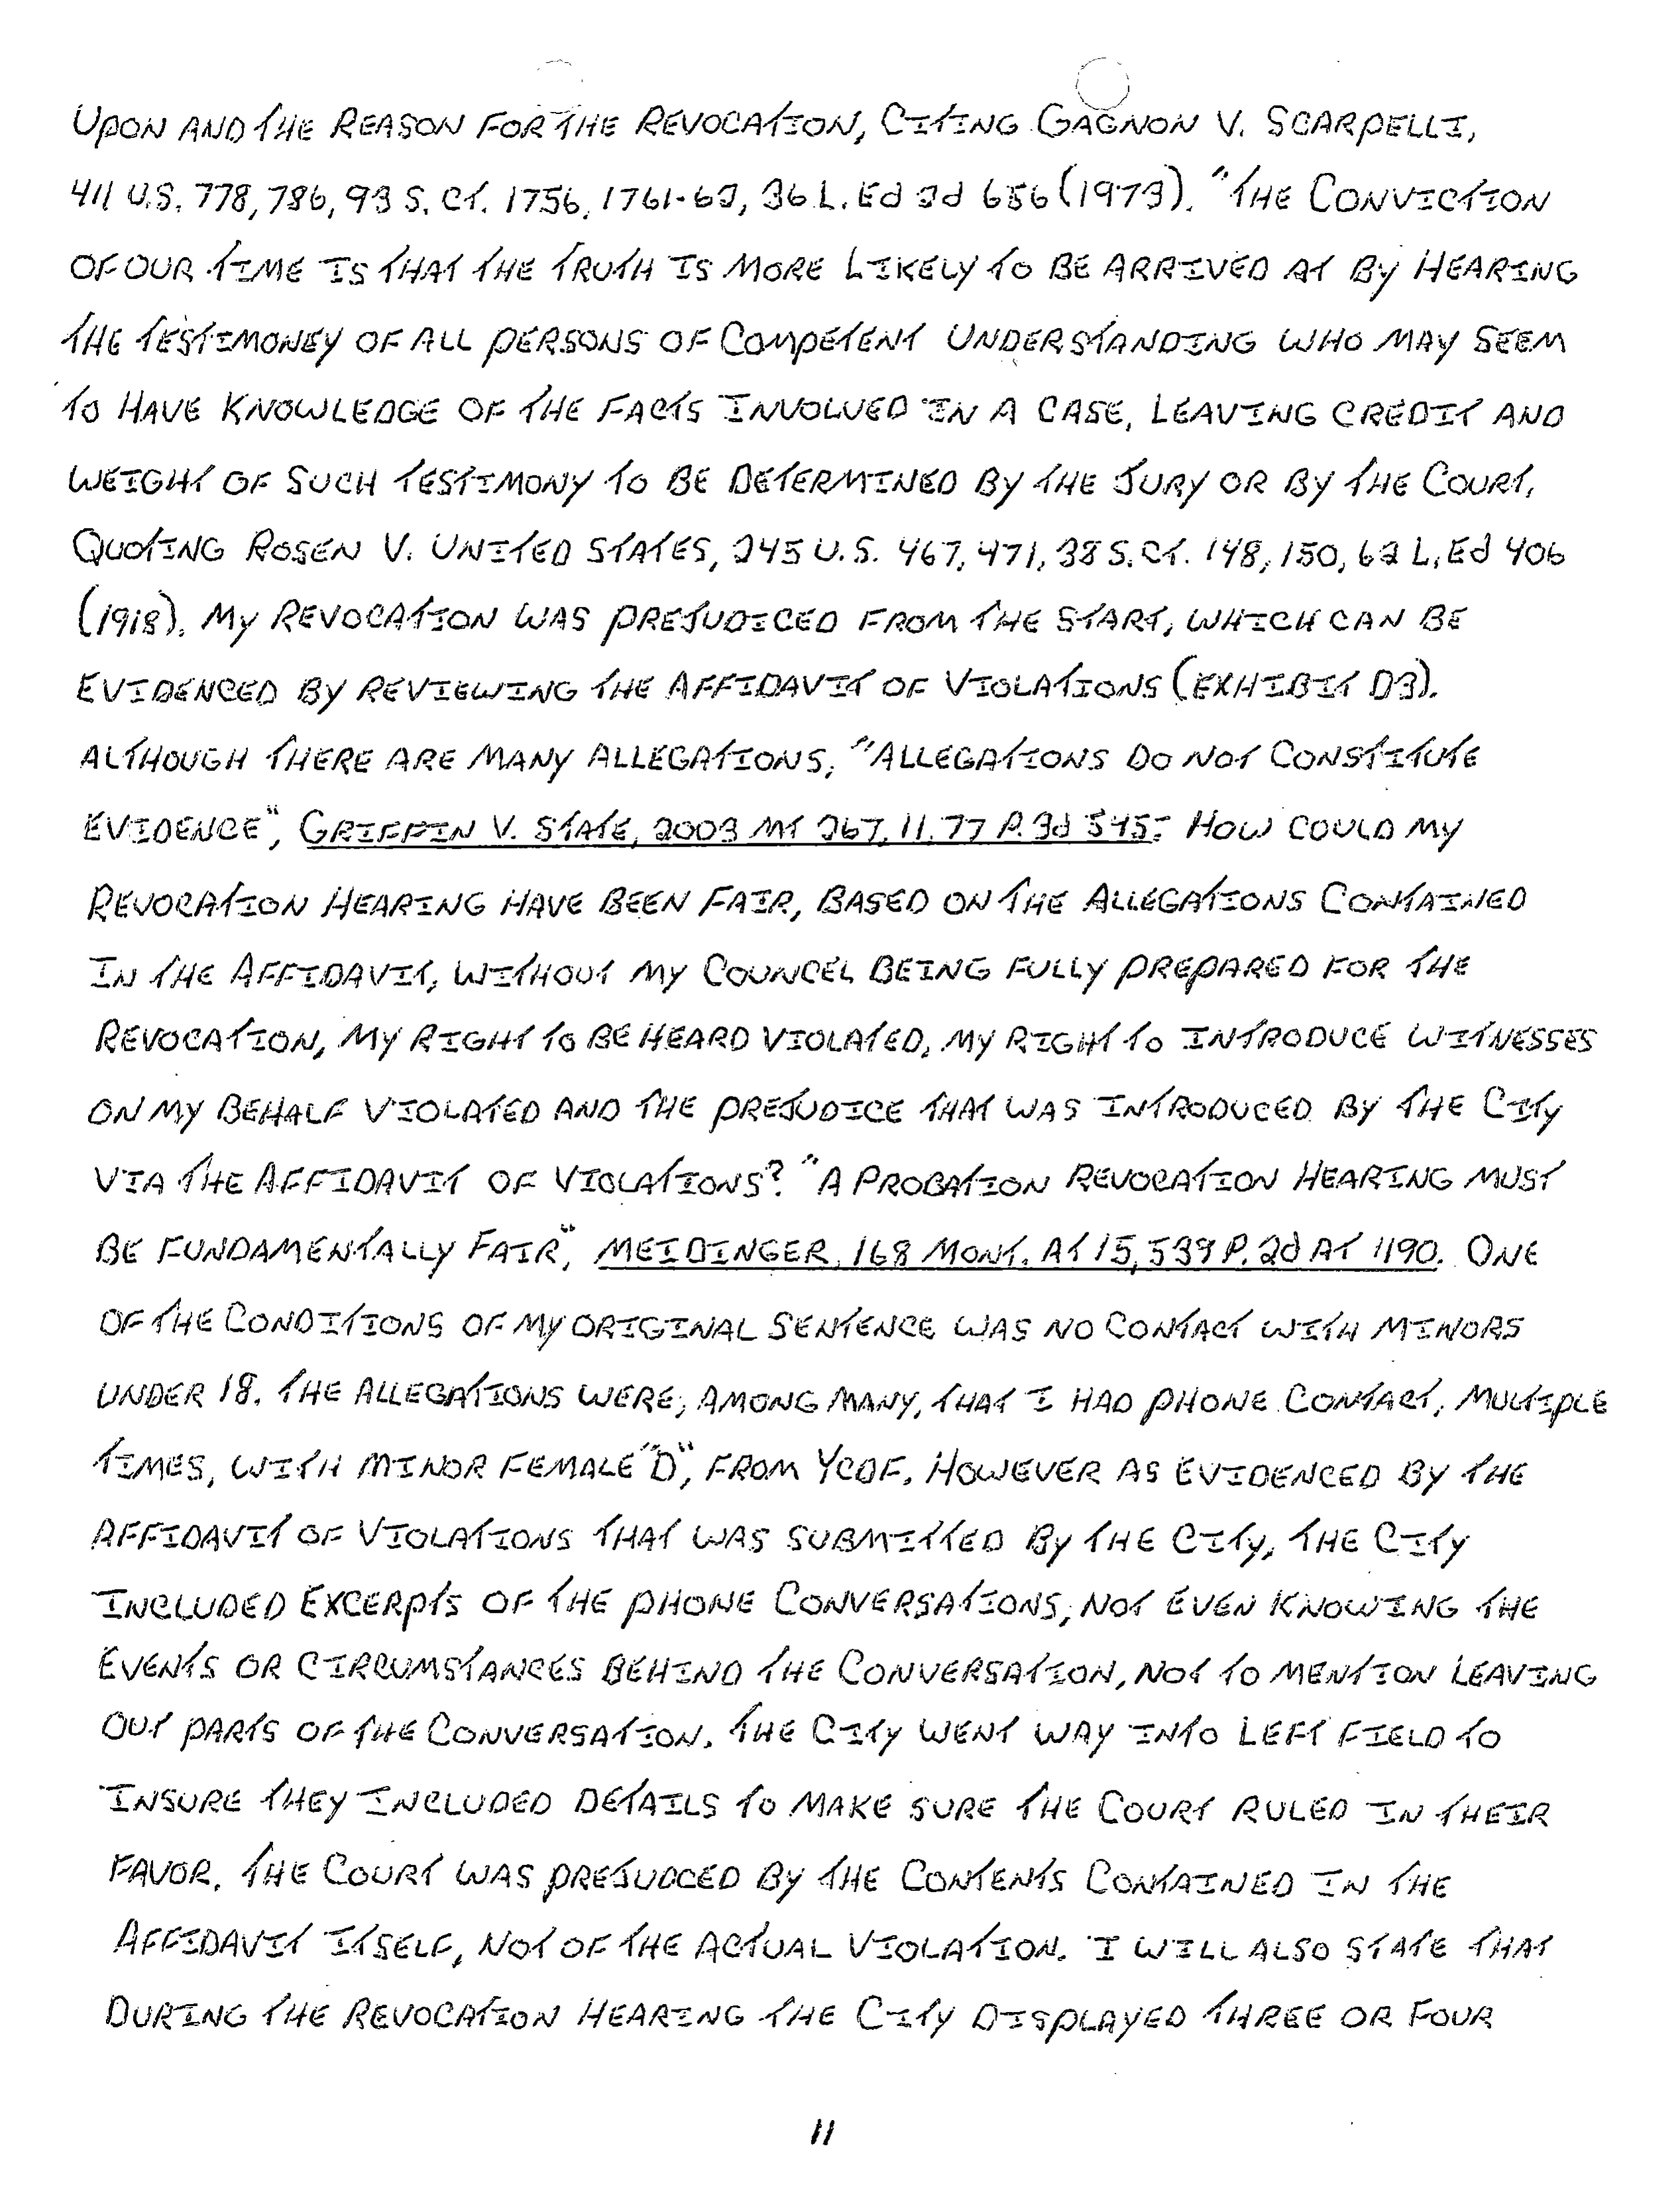 UPON AND THE REASON FOR THE REVOCATION, CITING GAGNON V. SCARPELLI,
411 U.S. 778, 786, 93 S. CT. 1756, 1761-62, 36 L. Ed 2d 656 (1973). "THE CONVICTION
OF OUR TIME IS THAT THE TRUTH IS MORE LIKELY TO BE ARRIVED AT BY HEARING
THE TESTIMONEY OF ALL PERSONS OF COMPETENT UNDERSTANDING WHO MAY SEEM
TO HAVE KNOWLEDGE OF THE FACTS INVOLVED IN A CASE, LEAVING CREDIT AND
WEIGHT OF SUCH TESTIMONY TO BE DETERMINED BY THE JURY OR BY THE COURT,
QUOTING ROSEN V. UNITED STATES, 245 U.S. 467, 471, 38 S. CT. 148, 150, 62 L. Ed 406
(1918). MY REVOCATION WAS PREJUDICED FROM THE START, WHICH CAN BE
EVIDENCED BY REVIEWING THE AFFIDAVIT OF VIOLATIONS (EXHIBIT D3).
ALTHOUGH THERE ARE MANY ALLEGATIONS, "ALLEGATIONS DO NOT CONSTITUTE
EVIDENCE", GRIFFIN V. STATE, 2003 MT 267, 11, 77 P. 3d 545. HOW COULD MY
REVOCATION HEARING HAVE BEEN FAIR, BASED ON THE ALLEGATIONS CONTAINED
IN THE AFFIDAVIT, WITHOUT MY COUNCEL BEING FULLY PREPARED FOR THE
REVOCATION, MY RIGHT TO BE HEARD VIOLATED, MY RIGHT TO INTRODUCE WITNESSES
ON MY BEHALF VIOLATED AND THE PREJUDICE THAT WAS INTRODUCED BY THE CITY
VIA THE AFFIDAVIT OF VIOLATIONS? "A PROBATION REVOCATION HEARING MUST
BE FUNDAMENTALLY FAIR", MEIDINGER, 168 MONT. AT 15, 539 P. 2d AT 1190. ONE
OF THE CONDITIONS OF MY ORIGINAL SENTENCE WAS NO CONTACT WITH MINORS
UNDER 18. THE ALLEGATIONS WERE, AMONG MANY, THAT I HAD PHONE CONTACT, MULTIPLE
TIMES, WITH MINOR FEMALE "D", FROM YCDF. HOWEVER AS EVIDENCED BY THE
AFFIDAVIT OF VIOLATIONS THAT WAS SUBMITTED BY THE CITY, THE CITY
INCLUDED EXCERPTS OF THE PHONE CONVERSATIONS, NOT EVEN KNOWING THE
EVENTS OR CIRCUMSTANCES BEHIND THE CONVERSATION, NOT TO MENTION LEAVING
OUT PARTS OF THE CONVERSATION. THE CITY WENT WAY INTO LEFT FIELD TO
INSURE THEY INCLUDED DETAILS TO MAKE SURE THE COURT RULED IN THEIR
FAVOR. THE COURT WAS PREJUDCED BY THE CONTENTS CONTAINED IN THE
AFFIDAVIT ITSELF, NOT OF THE ACTUAL VIOLATION. I WILL ALSO STATE THAT
DURING THE REVOCATION HEARING THE CITY DISPLAYED THREE OR FOUR
11